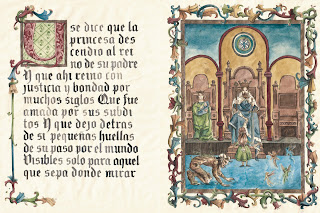 Y se dice que la
princesa des
cendio al rei
no de su padre
Y que ahi reino con
justicia y bondad por
muchos siglos Que fue
amada por sus subdi
tos Y que dejo detras
de si pequeñas huellas
de su paso por el mundo
Visibles solo para aquel
que sepa donde mirar